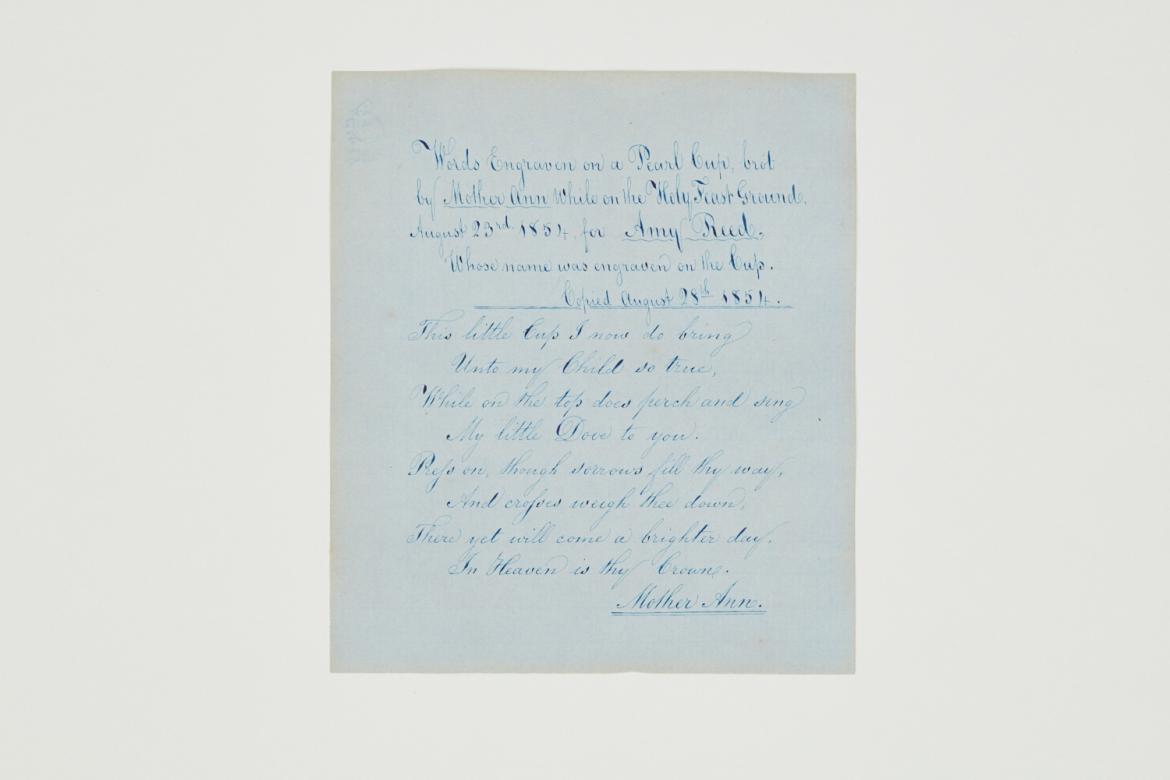 Words Engraven on a Pearl Cup, brot
by Mother Ann While on the Holy Feast Ground,
August 23rd 1854, for Amy Reed.
Whose name was engraven on the Cup.
Copied August 28th 1854.
This little Cup I now do bring
Unto my Child so true,
While on the top does perch and sing
My little Dove to you.
Preſs on, though sorrows fill thy way,
And croſses weigh thee down,
There yet will come a brighter day,
In Heaven is thy Crown.
Mother Ann.